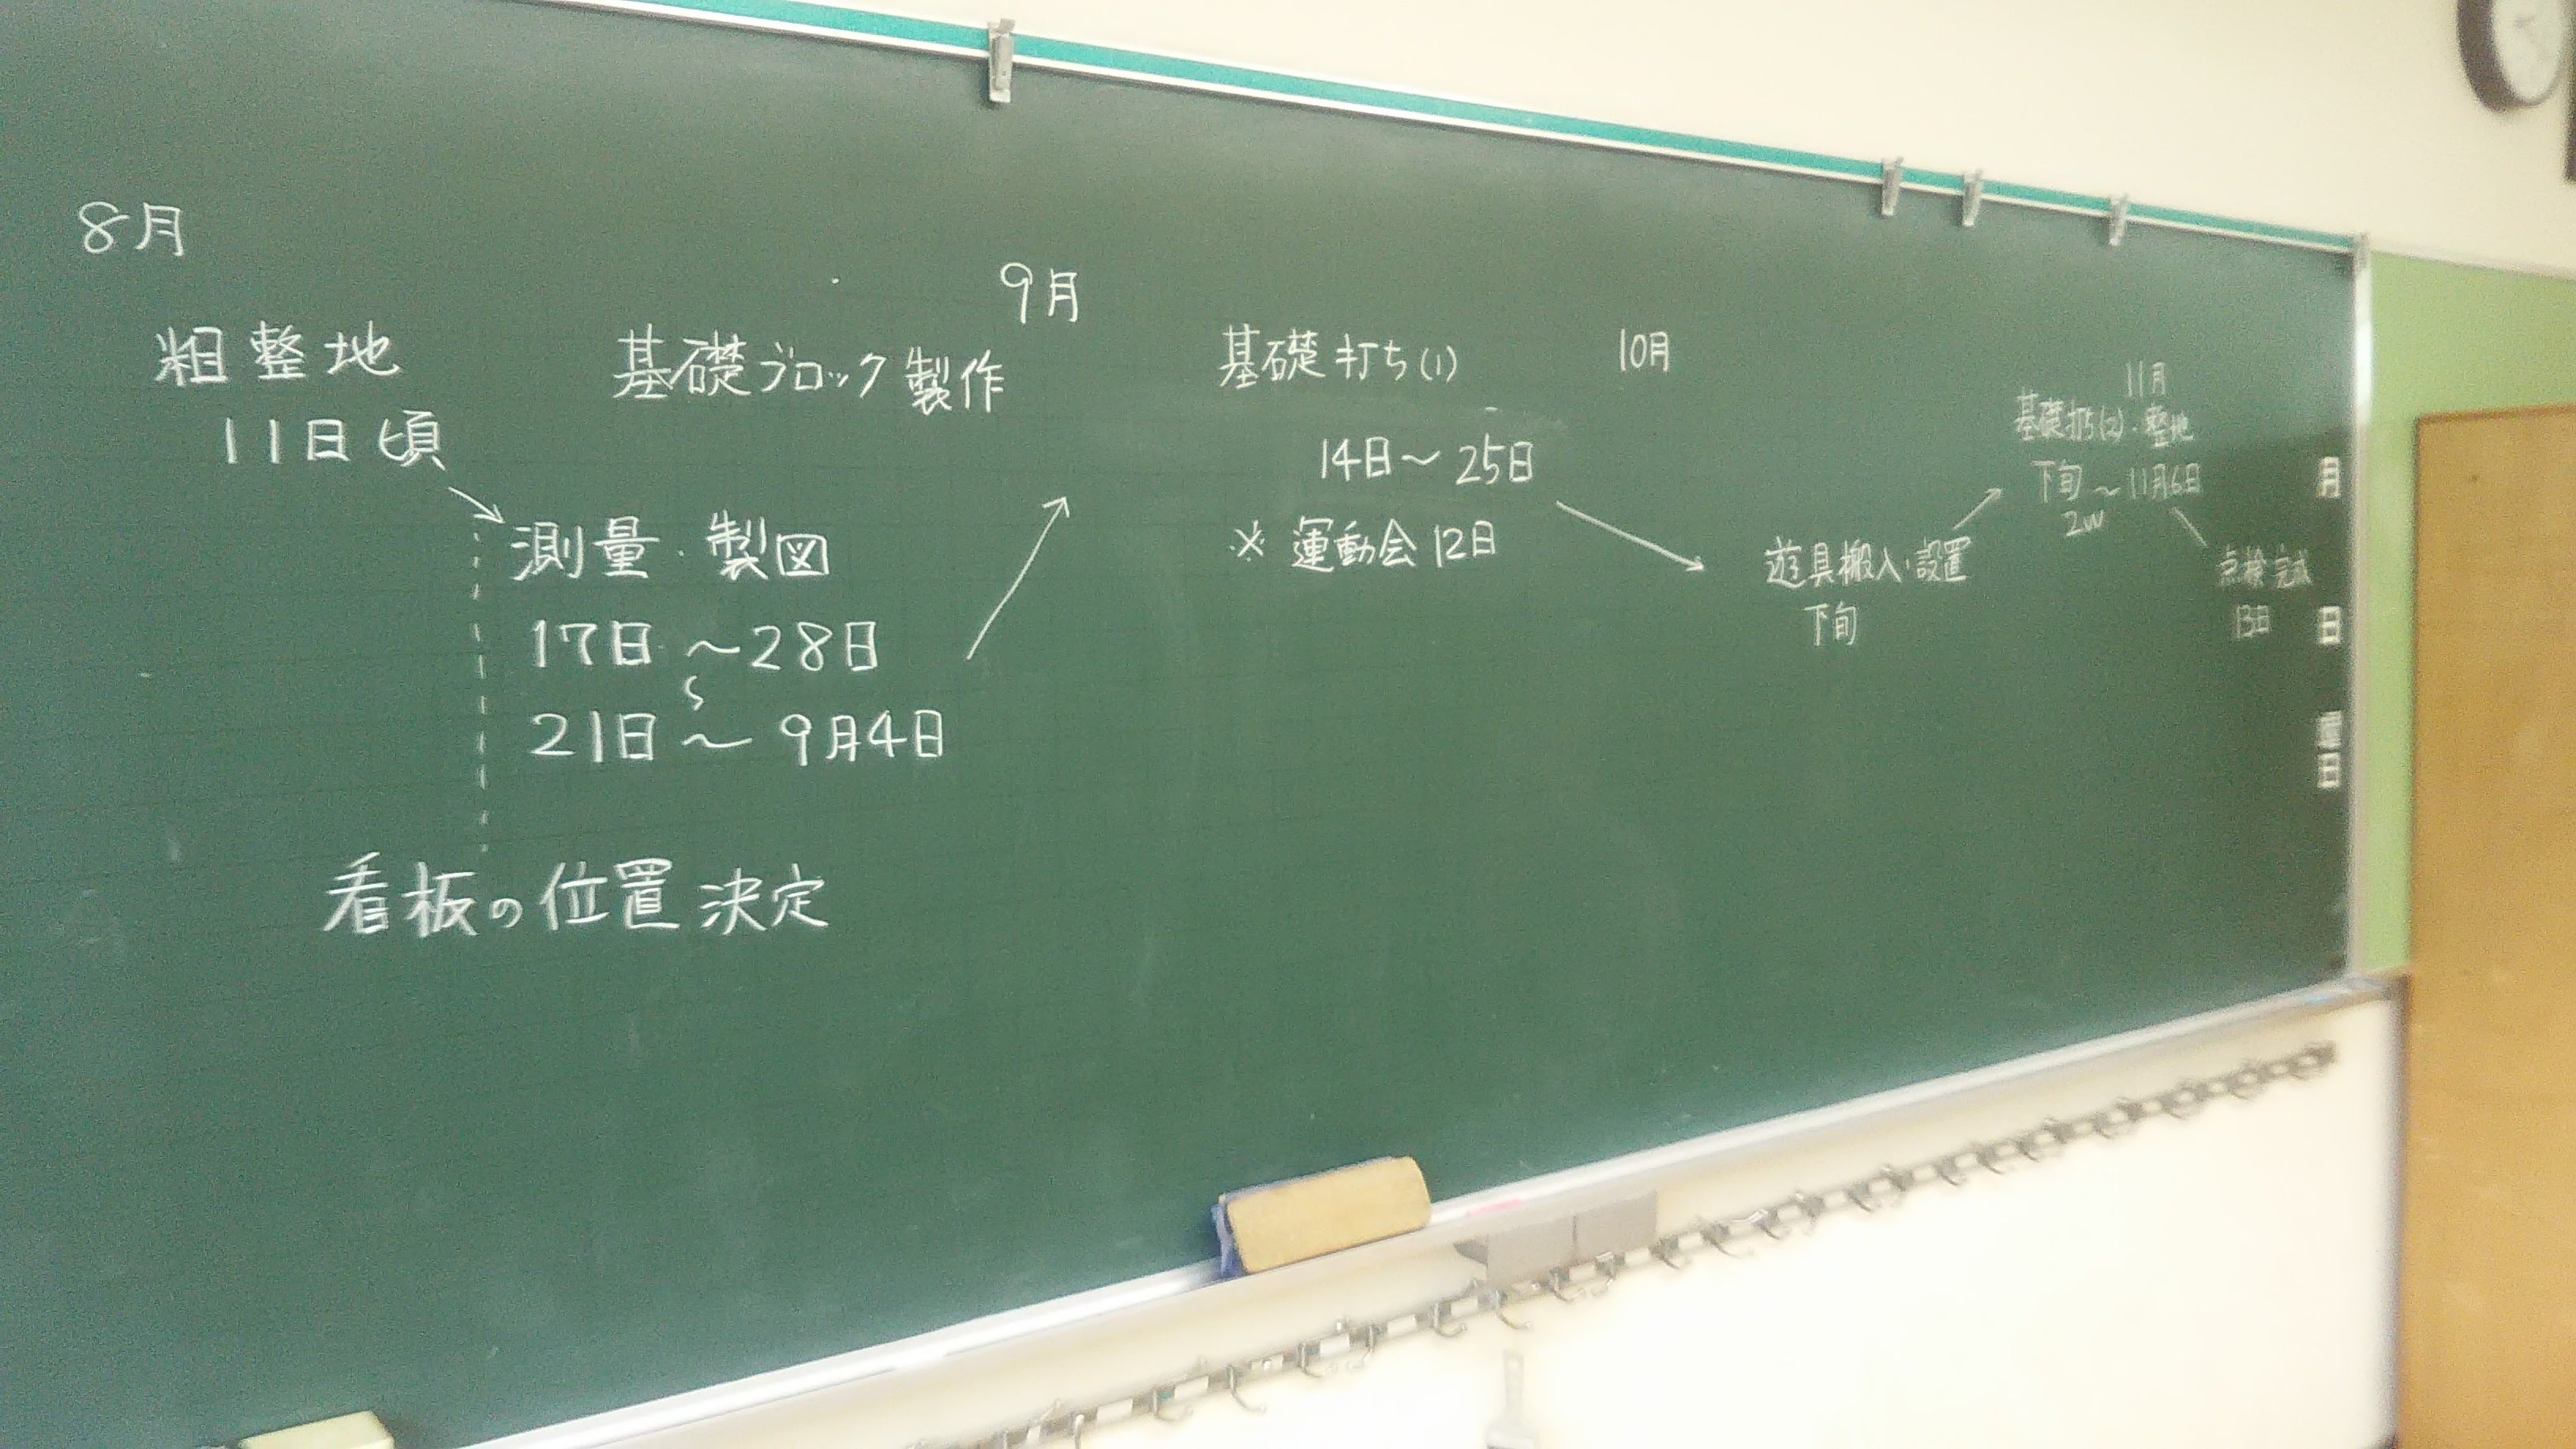 8月
粗整地
11日頃
測量・製図
17日～28日
〜
21日～9月4日
看板の位置決定
基礎ブロック製作
9月
基礎打ち(1)
14日～25日
※運動会12日
10月
遊具搬入・設置
下旬
11月
基礎打ち(2)・整地
下旬～11月6日
2w
点検完成
13日
月
日
曜
日